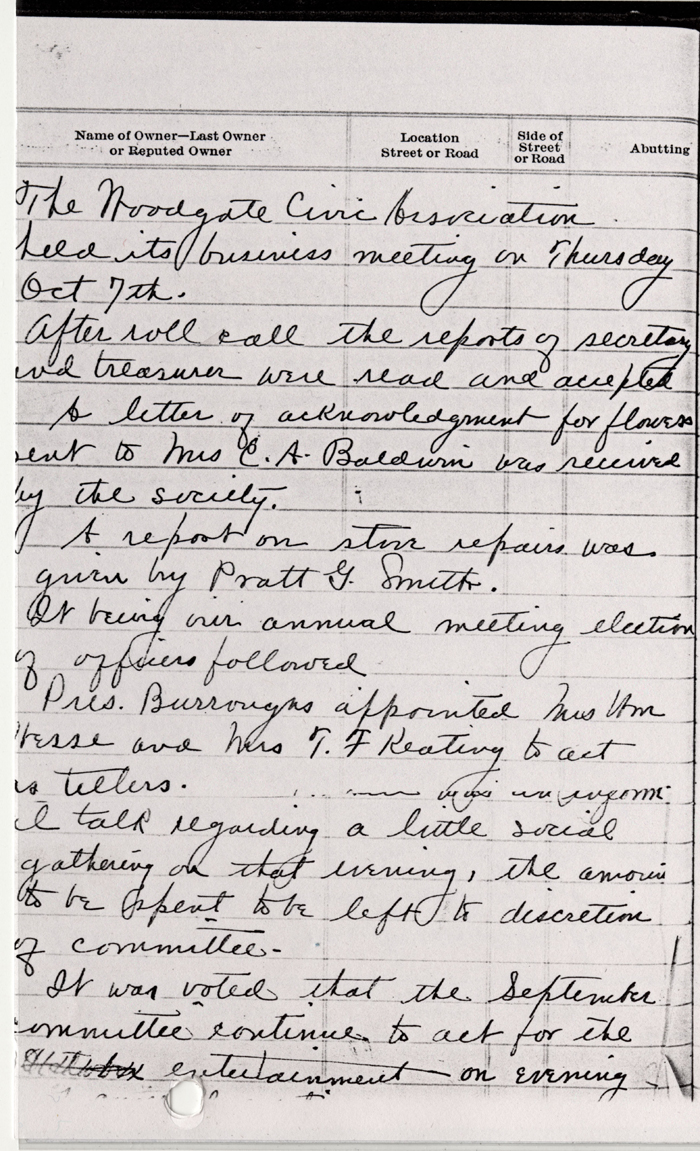 Name of Owner—Last Owner
or Reputed Owner
Location
Street or Road
Side of
Street
or Road
Abutting
The Woodgate Civic Association
held its business meeting on Thursday
Oct 7th.
After roll call the reports of secretary
and treasurer were read and accepted
A letter of acknowledgment for flowers
sent to Mrs C. A. Baldwin was received
by the society.
A report on store repairs was
given by Pratt G. Smith.
It being our annual meeting election
of officers followed
Pres. Burroughs appointed Mrs Wm
Hesse and Mrs T. F Keating to act
as tellers.
was an inform
al talk regarding a little social
gathering on that evening, the amoun
to be spent to be left to discretion
of committee-
It was voted that the September
committee continue to act for the
entertainment on evening